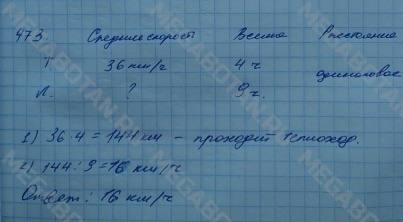 473. Средние скорость Время Расстояние
Т 36 км/ч 4 ч одинаковое
Л. ? 9 ч.
1) 36·4=144 км – проходит теплоход.
2) 144:9=16 км/ч
Ответ: 16 км/ч